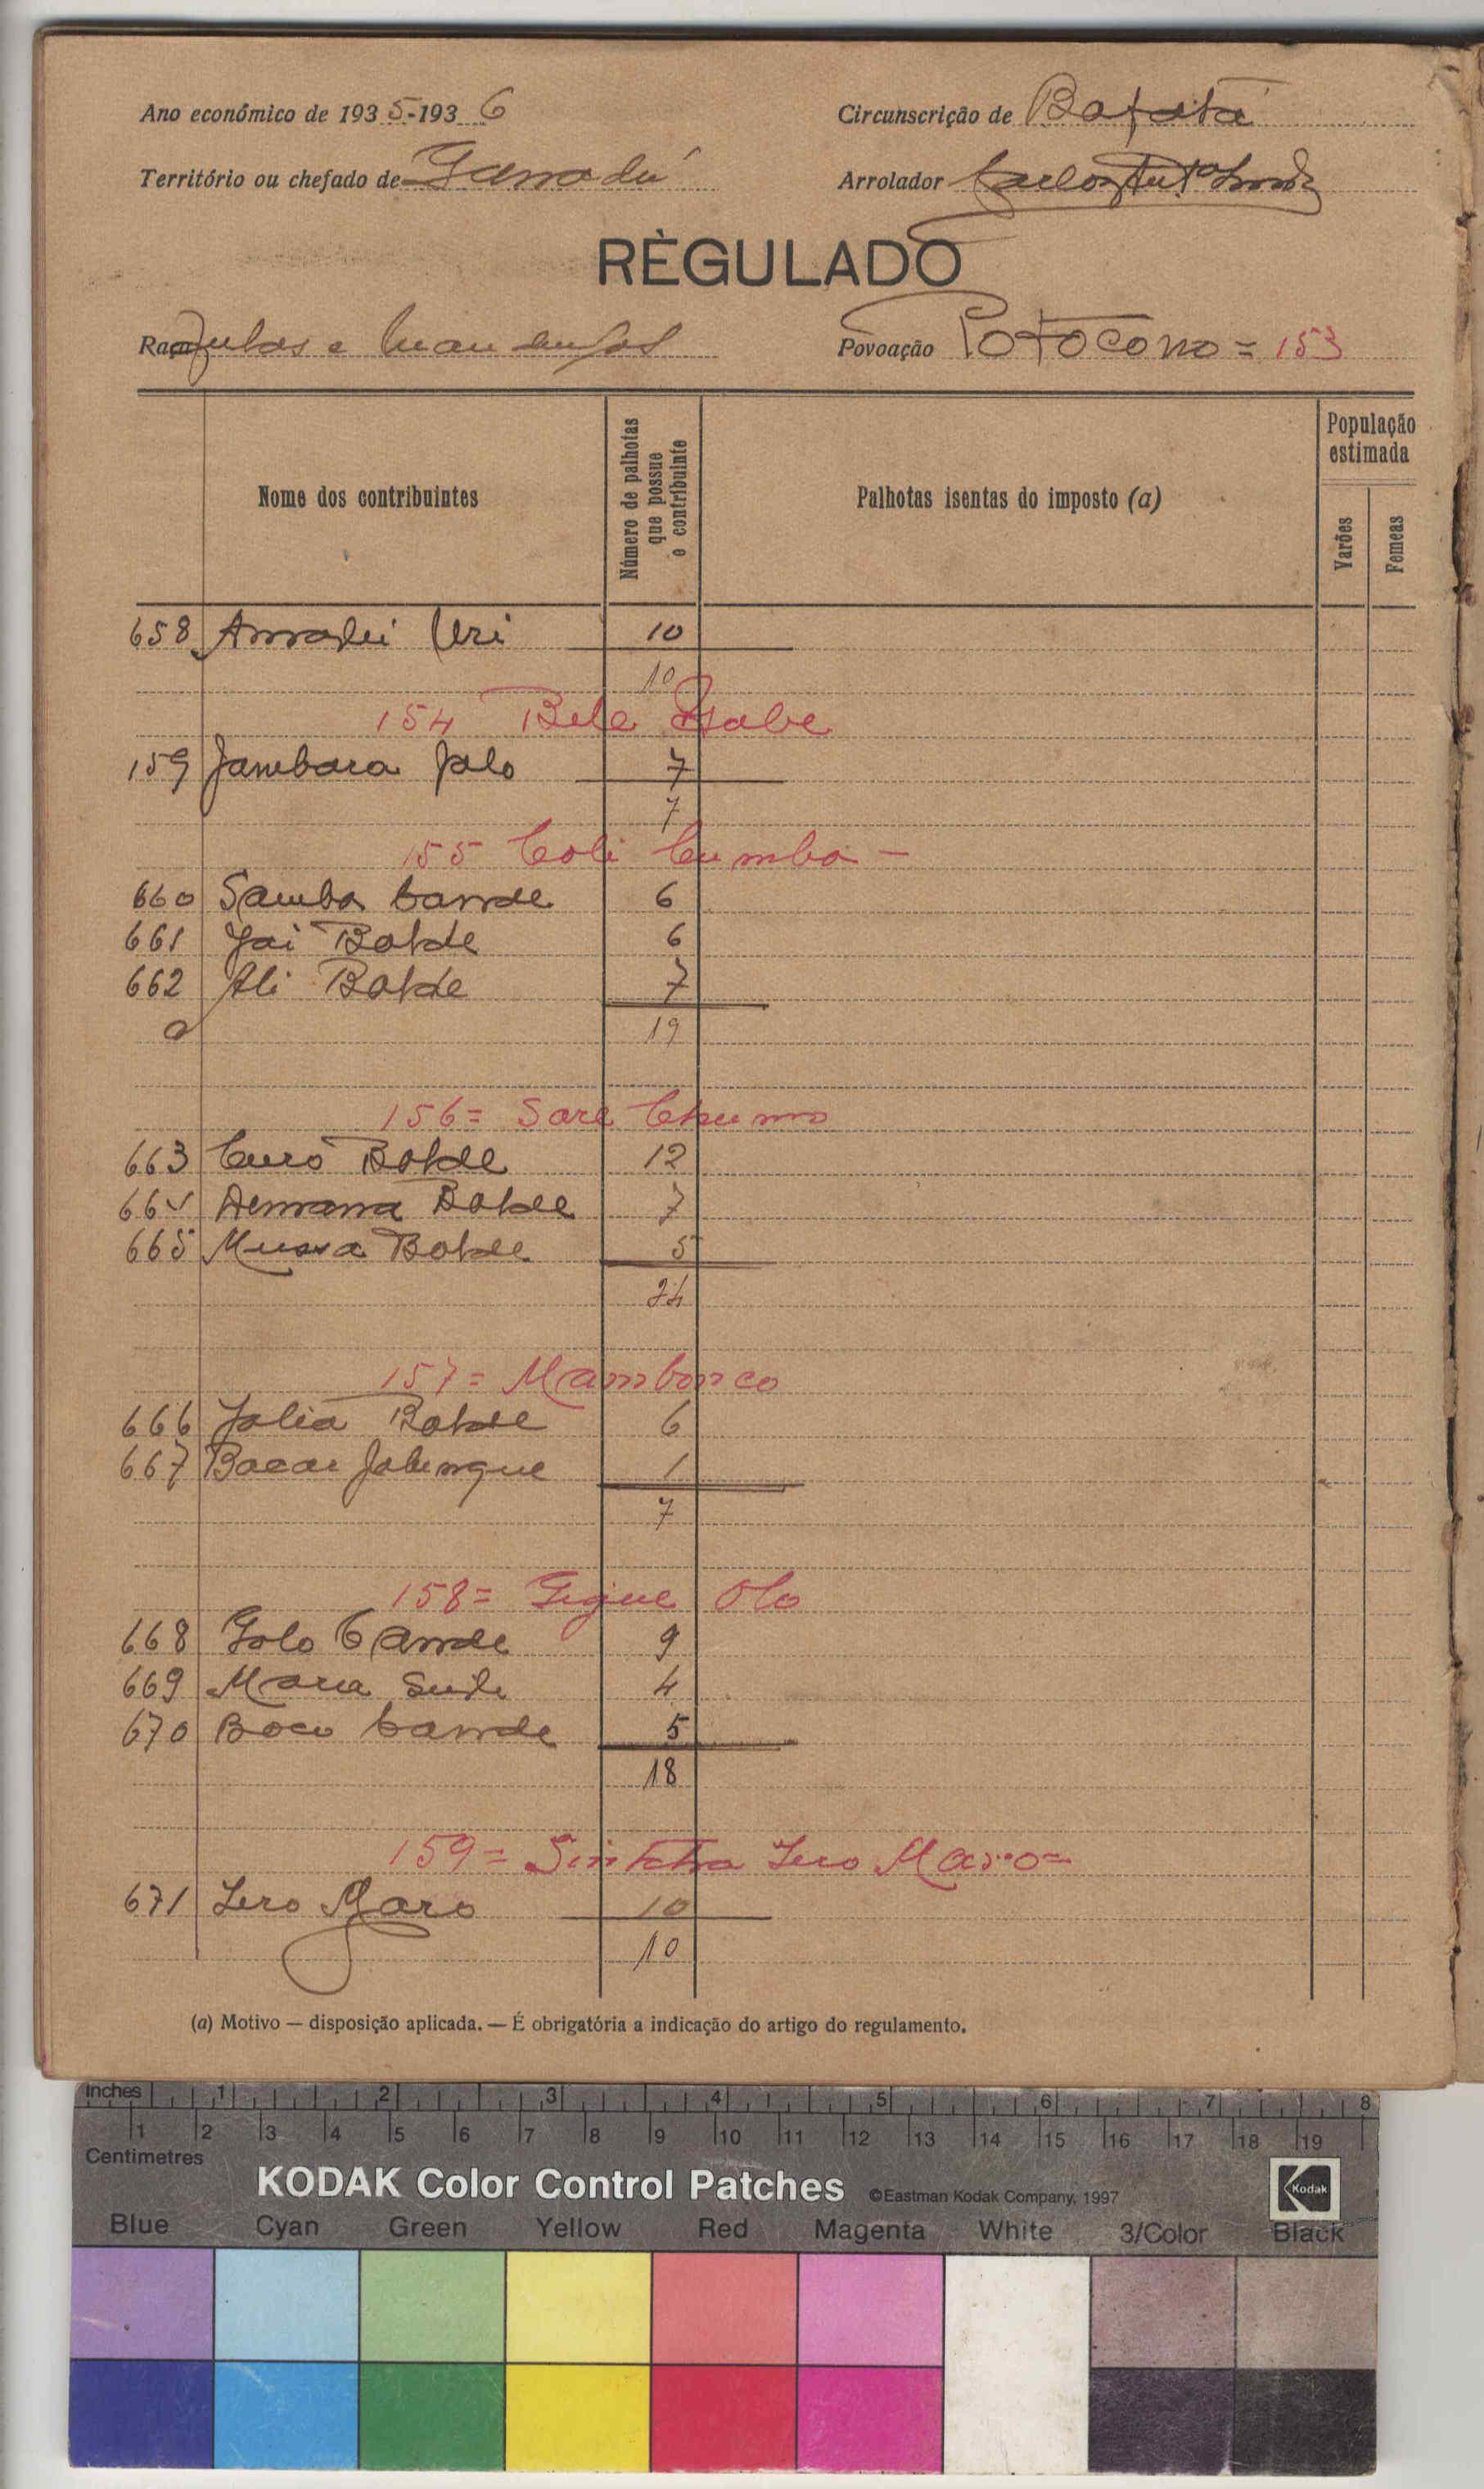 Ano económico de 1935-1936
Circunscrição de Bafatá
Território ou chefado de Ganadú
Arrolador
RÈGULADO
Raça Fulas e Mandingas
Povoação Potocono = 153
Nome dos contribuintes
Número de palhotas que possue o contribuinte
Palhotas isentas do imposto (a)
População estimada
Varões
Femeas
658 Amadú Uri 10
10
154 Bele
159 Jambara Jalo 7
7
155 Coli Cumba -
660 Samba Cande 6
661 Jai Balde 6
662 Ali Balde 7
19
156 = Sare
663 Curo Balde 12
664 Balde 7
665 Mussa Balde 5
24
157 = Mambonco
666 Jalia Balde 6
667 Bacar 1
7
158 = Olo
668 Golo Cande 9
669 Maria 4
670 Cande 5
18
159 = Maro =
671 Iero Maro 10
10
(a) Motivo — disposição aplicada. — É obrigatória a indicação do artigo do regulamento.
Inches 1 2 3 4 5 6 7 8
1 2 3 4 5 6 7 8 9 10 11 12 13 14 15 16 17 18 19
Centimetres
KODAK Color Control Patches ©Eastman Kodak Company, 1997
Kodak
Blue Cyan Green Yellow Red Magenta White 3/Color Black